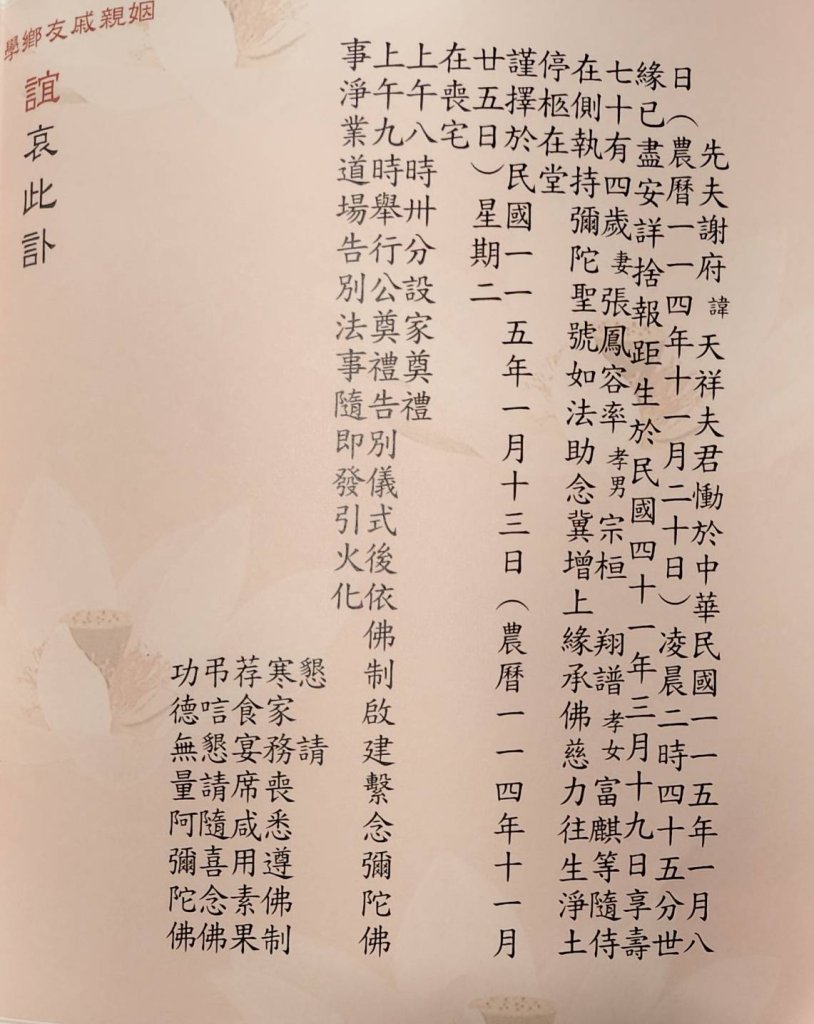 先夫謝府 諱 天祥夫君慟於中華民國一一五年一月八
日（農曆一一四年十一月二十日）凌晨二時四十五分世
緣已盡安詳捨報距生於民國四十一年三月十九日享壽
七十有四歲 妻 張鳳容率 孝男 宗桓 翔譜 孝女 富麒等隨侍
在側執持彌陀聖號如法助念冀增上緣承佛慈力往生淨土
停柩在堂
謹擇於民國一一五年一月十三日（農曆一一四年十一月
廿五日）星期二
在喪宅
上午八時卅分設家奠禮
上午九時舉行公奠禮告別儀式後依佛制啟建繫念彌陀佛
事淨業道場告別法事隨即發引火化
懇 請
寒家務喪悉遵佛制
荐食宴席咸用素果
弔唁懇請隨喜念佛
功德無量阿彌陀佛
姻親戚友鄉學
誼哀此訃